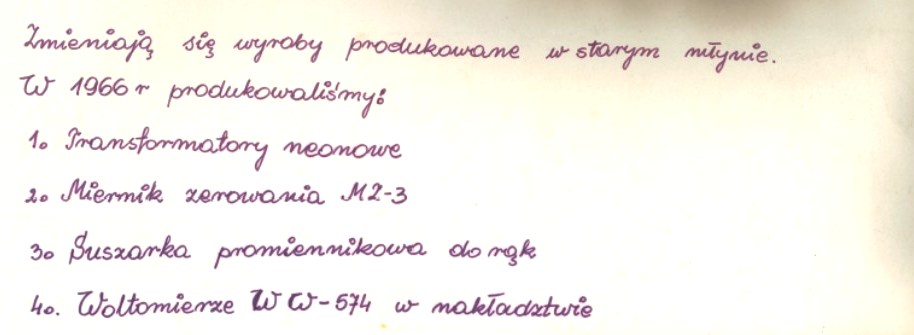 Zmieniają się wyroby produkowane w starym młynie.
W 1966 r produkowaliśmy:
1. Transformatory neonowe
2. Miernik zerowania MZ-3
3. Suszarka promiennikowa do rąk
4. Woltomierze WW-574 w nakładztwie